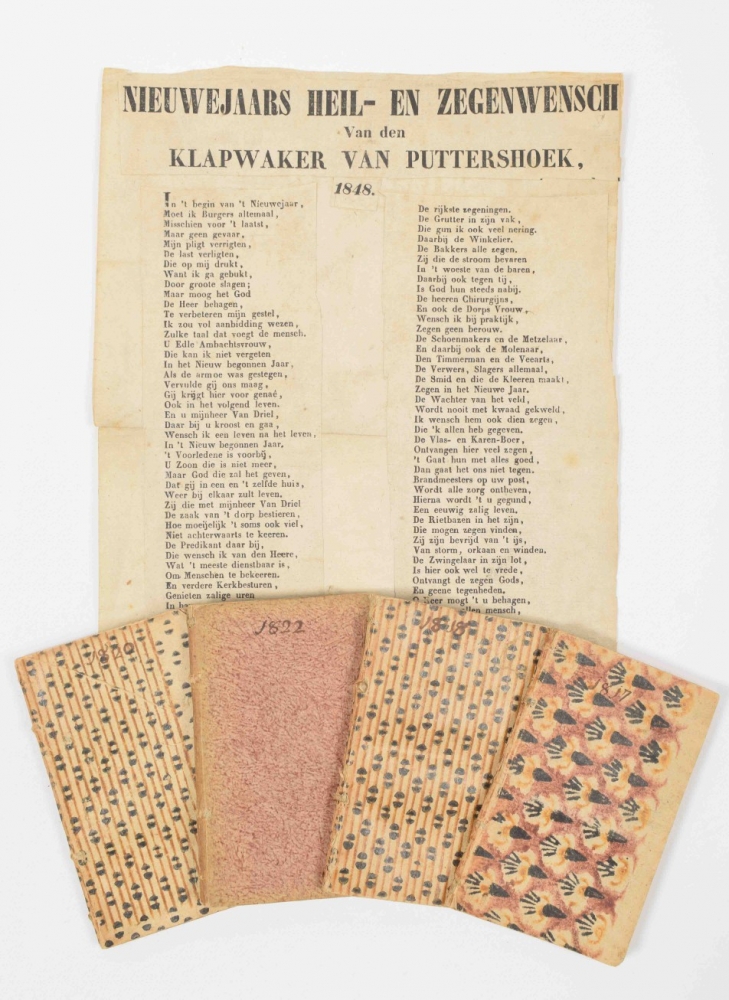 NIEUWEJAARS HEIL- EN ZEGENWENSCH
Van den
KLAPWAKER VAN PUTTERSHOEK,
1848.
In 't begin van 't Nieuwejaar,
Moet ik Burgers altemaal,
Misschien voor 't laatst,
Maar geen gevaar,
Mijn pligt verrigten,
De last verligten,
Die op mij drukt,
Want ik ga gebukt,
Door groote slagen;
Maar moog het God
De Heer behagen,
Te verbeteren mijn gestel,
Ik zou vol aanbidding wezen,
Zulke taal dat voegt de mensch.
U Edle Ambachtsvrouw,
Die kan ik niet vergeten
In het Nieuw begonnen Jaar,
Als de armoe was gestegen,
Vervulde gij ons maag,
Gij krijgt hier voor genaé,
Ook in het volgend leven.
En u mijnheer Van Driel,
Daar bij u kroost en gaa,
Wensch ik een leven na het leven.
In 't Nieuw begonnen Jaar.
't Voorledene is voorbij,
U Zoon die is niet meer,
Maar God die zal het geven,
Dat gij in een en 't zelfde huis,
Weer bij elkaar zult leven.
Zij die met mijnheer Van Driel
De zaak van 't dorp bestieren,
Hoe moeijelijk 't soms ook viel,
Niet achterwaarts te keeren.
De Predikant daar bij,
Die wensch ik van den Heere,
Wat 't meeste dienstbaar is,
Om Menschen te bekeeren.
En verdere Kerkbesturen,
Genieten zalige uren
De rijkste zegeningen.
De Grutter in zijn vak,
Die gun ik ook veel nering.
Daarbij de Winkelier.
De Bakkers alle zegen.
Zij die de stroom bevaren
In 't woeste van de baren,
Daarbij ook tegen tij,
Is God hun steeds nabij.
De heeren Chirurgijns,
En ook de Dorps Vrouw,
Wensch ik bij praktijk,
Zegen geen berouw.
De Schoenmakers en de Metzelaar,
En daarbij ook de Molenaar,
Den Timmerman en de Veearts,
De Verwers, Slagers allemaal,
De Smid en die de Kleeren maakt,
Zegen in het Nieuwe Jaar.
De Wachter van het veld,
Wordt nooit met kwaad gekweld,
Ik wensch hem ook dien zegen,
Die 'k allen heb gegeven.
De Vlas- en Karen-Boer,
Ontvangen hier veel zegen,
't Gaat hun met alles goed,
Dan gaat het ons niet tegen.
Brandmeesters op uw post,
Wordt alle zorg ontheven,
Hierna wordt 't u gegund,
Een eeuwig zalig leven.
De Rietbazen in het zijn,
Die mogen zegen vinden,
Zij zijn bevrijd van 't ijs,
Van storm, orkaan en winden.
De Zwingelaar in zijn lot,
Is hier ook wel te vrede,
Ontvangt de zegen Gods,
En geene tegenheden.
heer mogt 't u behagen,
allen mensch,
1820
1822
1818
1817